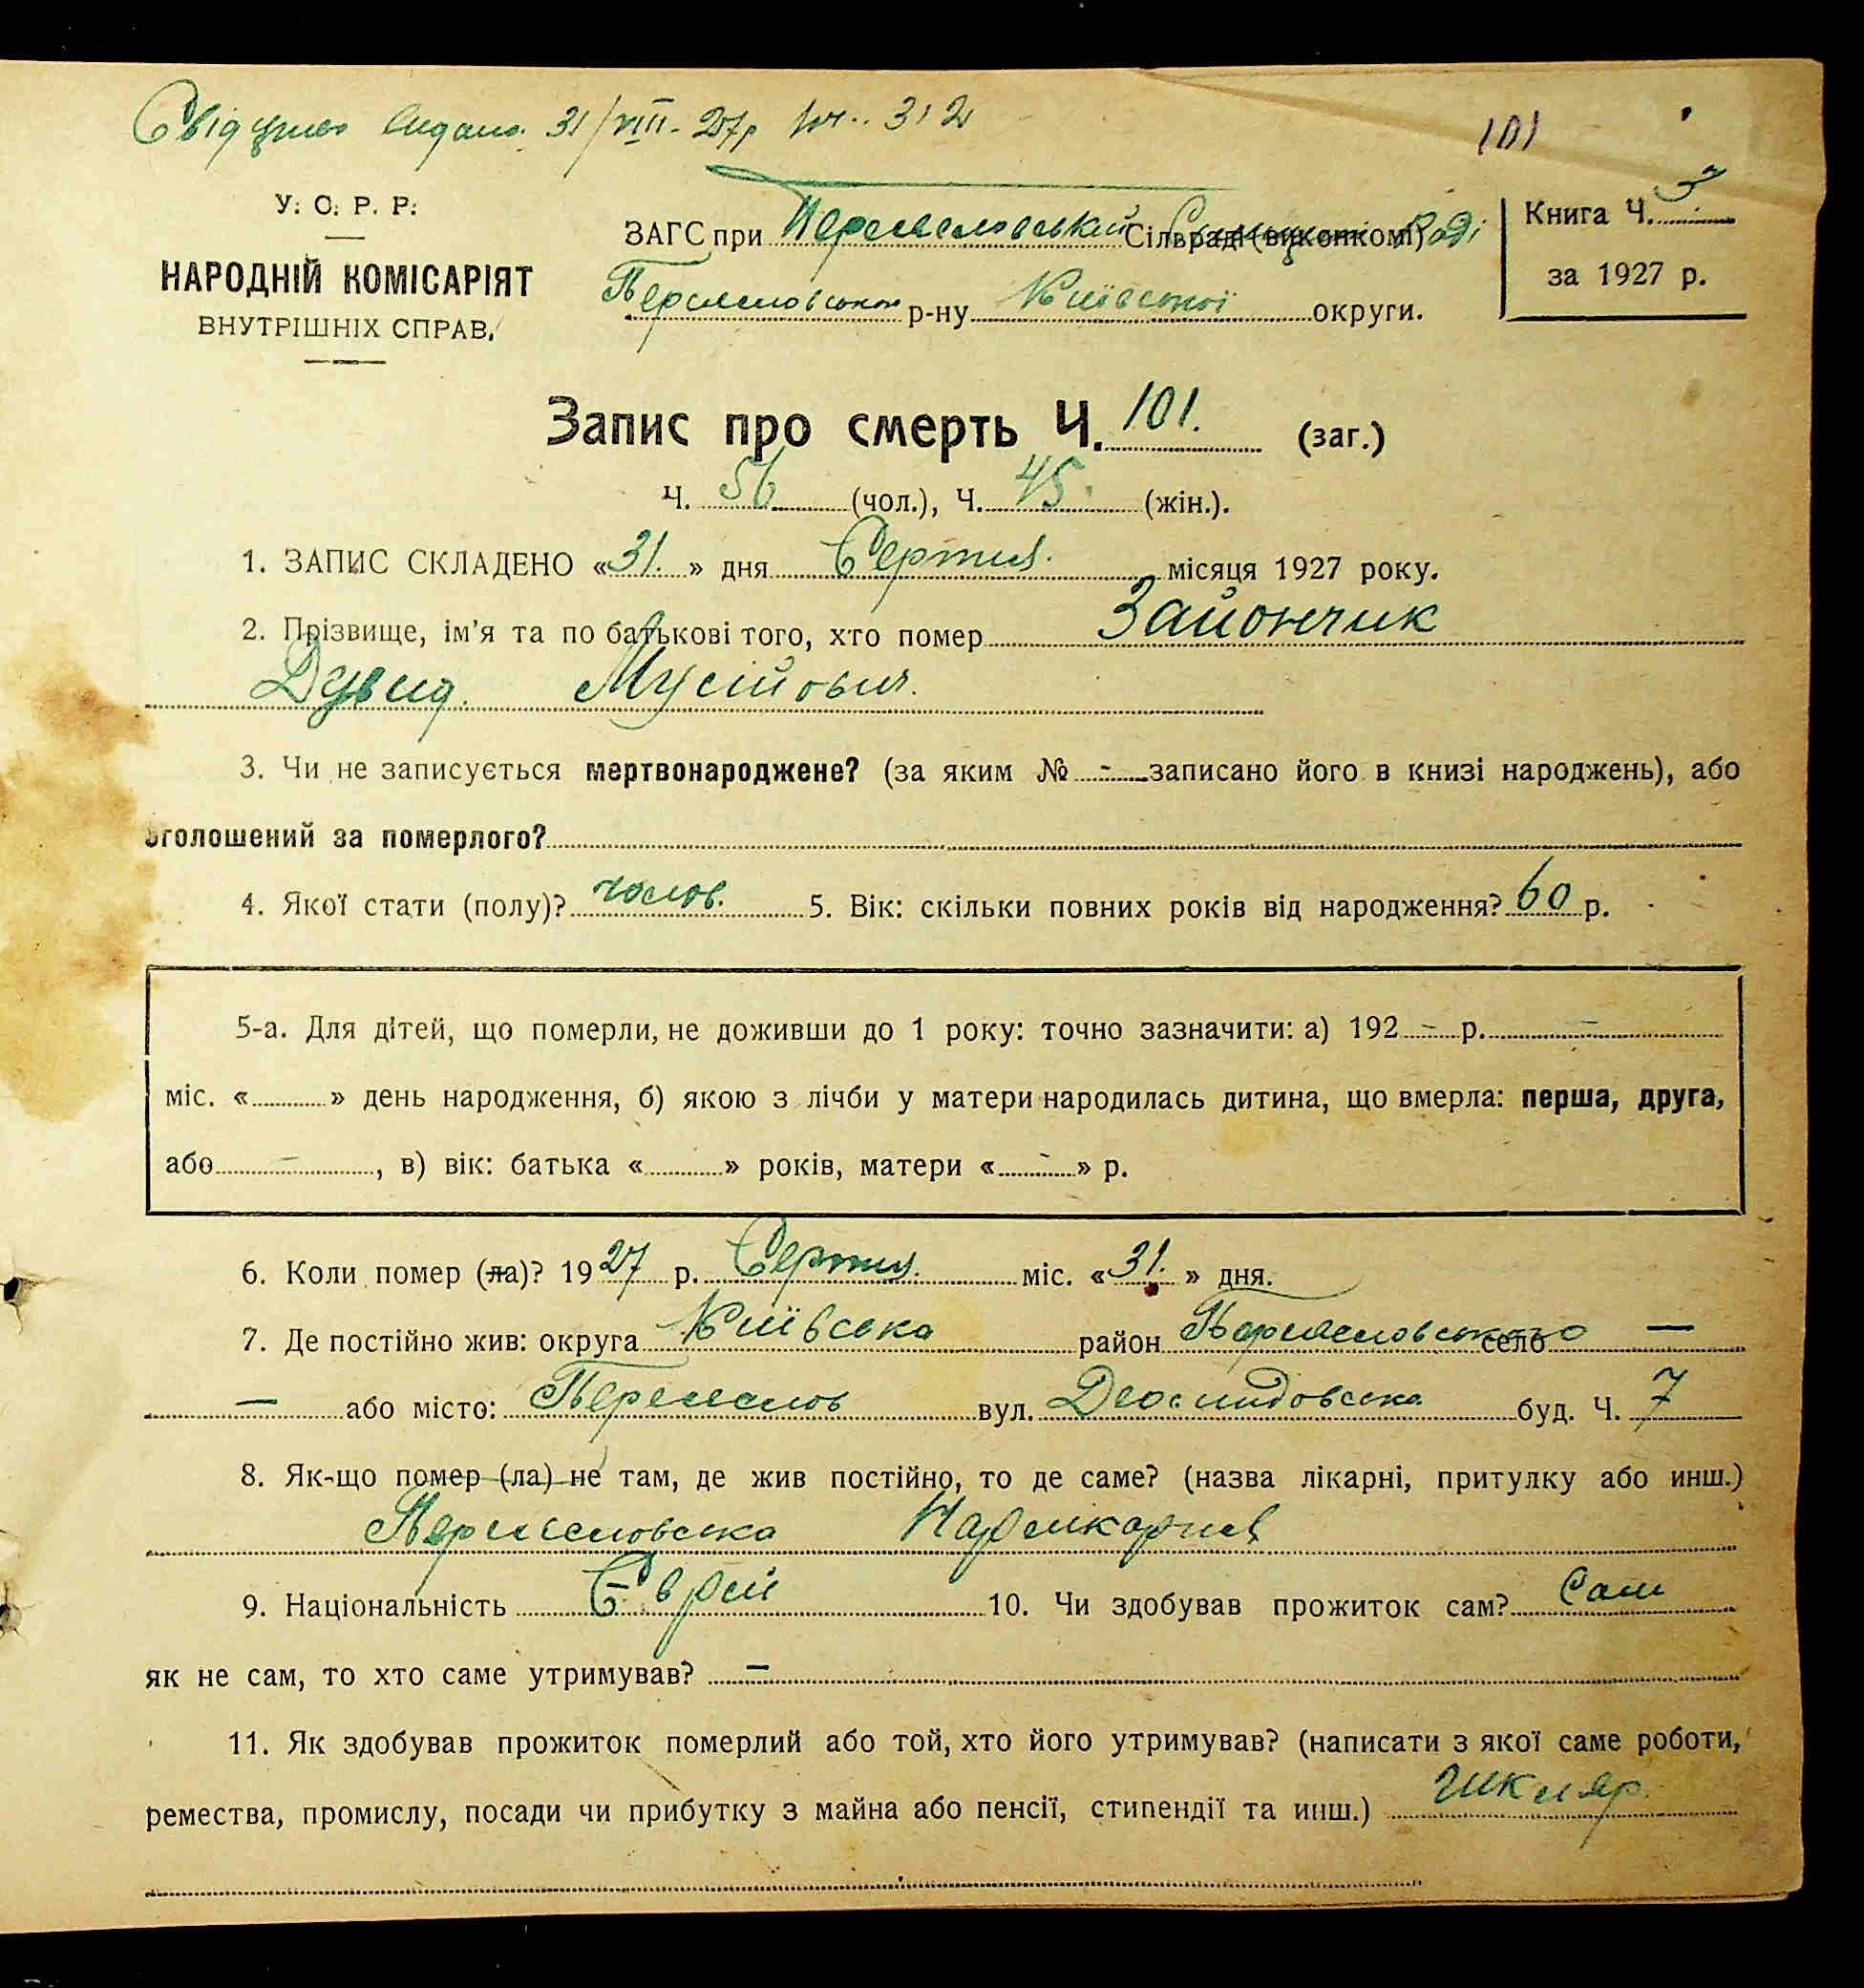 Свідоцтво видано 31/VIII-27р 312
101
У. С. Р. Р.
НАРОДНІЙ КОМІСАРІЯТ
ВНУТРІШНІХ СПРАВ.
ЗАГС при Переяславській Сільраді (виконкомі) Раді
Переяславського р-ну Київської округи.
Книга Ч. 3
за 1927 р.
Запис про смерть Ч. 101. (заг.)
Ч. 56 (чол.), Ч. 45 (жін.).
1. ЗАПИС СКЛАДЕНО «31.» дня Серпня місяця 1927 року.
2. Прізвище, ім'я та по батькові того, хто помер Зайончик
Дувид Мусійович.
3. Чи не записується мертвонароджене? (за яким № - записано його в книзі народжень), або
оголошений за померлого?
4. Якої стати (полу)? чолов. 5. Вік: скільки повних років від народження? 60 р.
5-а. Для дітей, що померли, не доживши до 1 року: точно зазначити: а) 192 - р. -
міс. « » день народження, б) якою з лічби у матери народилась дитина, що вмерла: перша, друга,
або -, в) вік: батька « » років, матери « - » р.
6. Коли помер (ла)? 1927 р. Серпня міс. «31.» дня.
7. Де постійно жив: округа Київська район Переяславського село —
— або місто: Переяслов вул. буд. Ч. 7
8. Як-що помер (ла) не там, де жив постійно, то де саме? (назва лікарні, притулку або инш.)
Переясловська Нарлікарня
9. Національність Єврей 10. Чи здобував прожиток сам? Сам
як не сам, то хто саме утримував? —
11. Як здобував прожиток померлий або той, хто його утримував? (написати з якої саме роботи,
ремества, промислу, посади чи прибутку з майна або пенсії, стипендії та инш.) Шкляр.